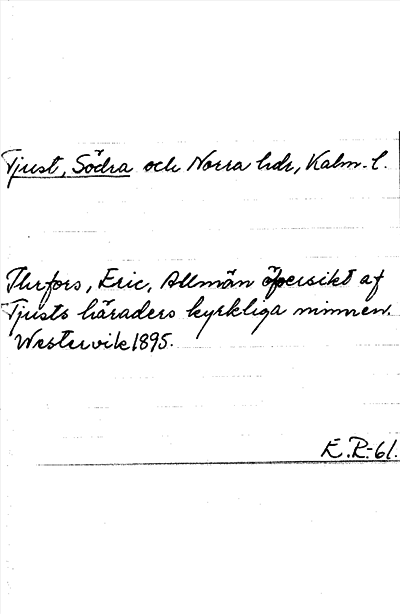 Tjust, Södra och Norra hdr, Kalm. l.
Ihrfors, Eric, Allmän öfversikt af
Tjusts häraders kyrkliga minnen.
Westervik 1895.
E.R.-61.